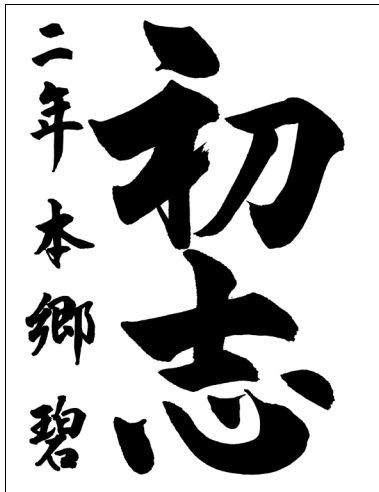 初志
二年本郷碧